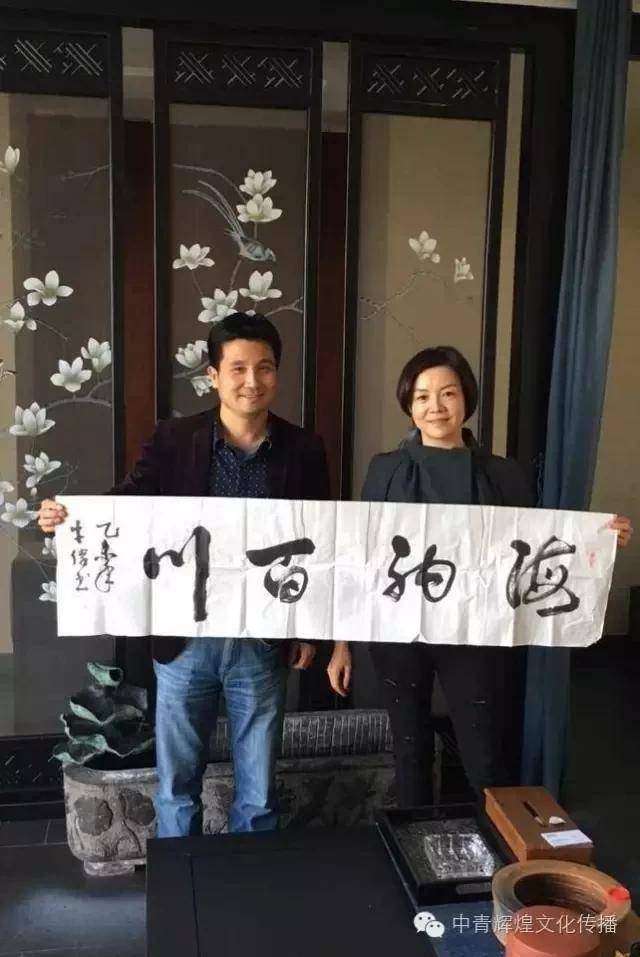 海纳百川
乙未年
书
中青辉煌文化传播